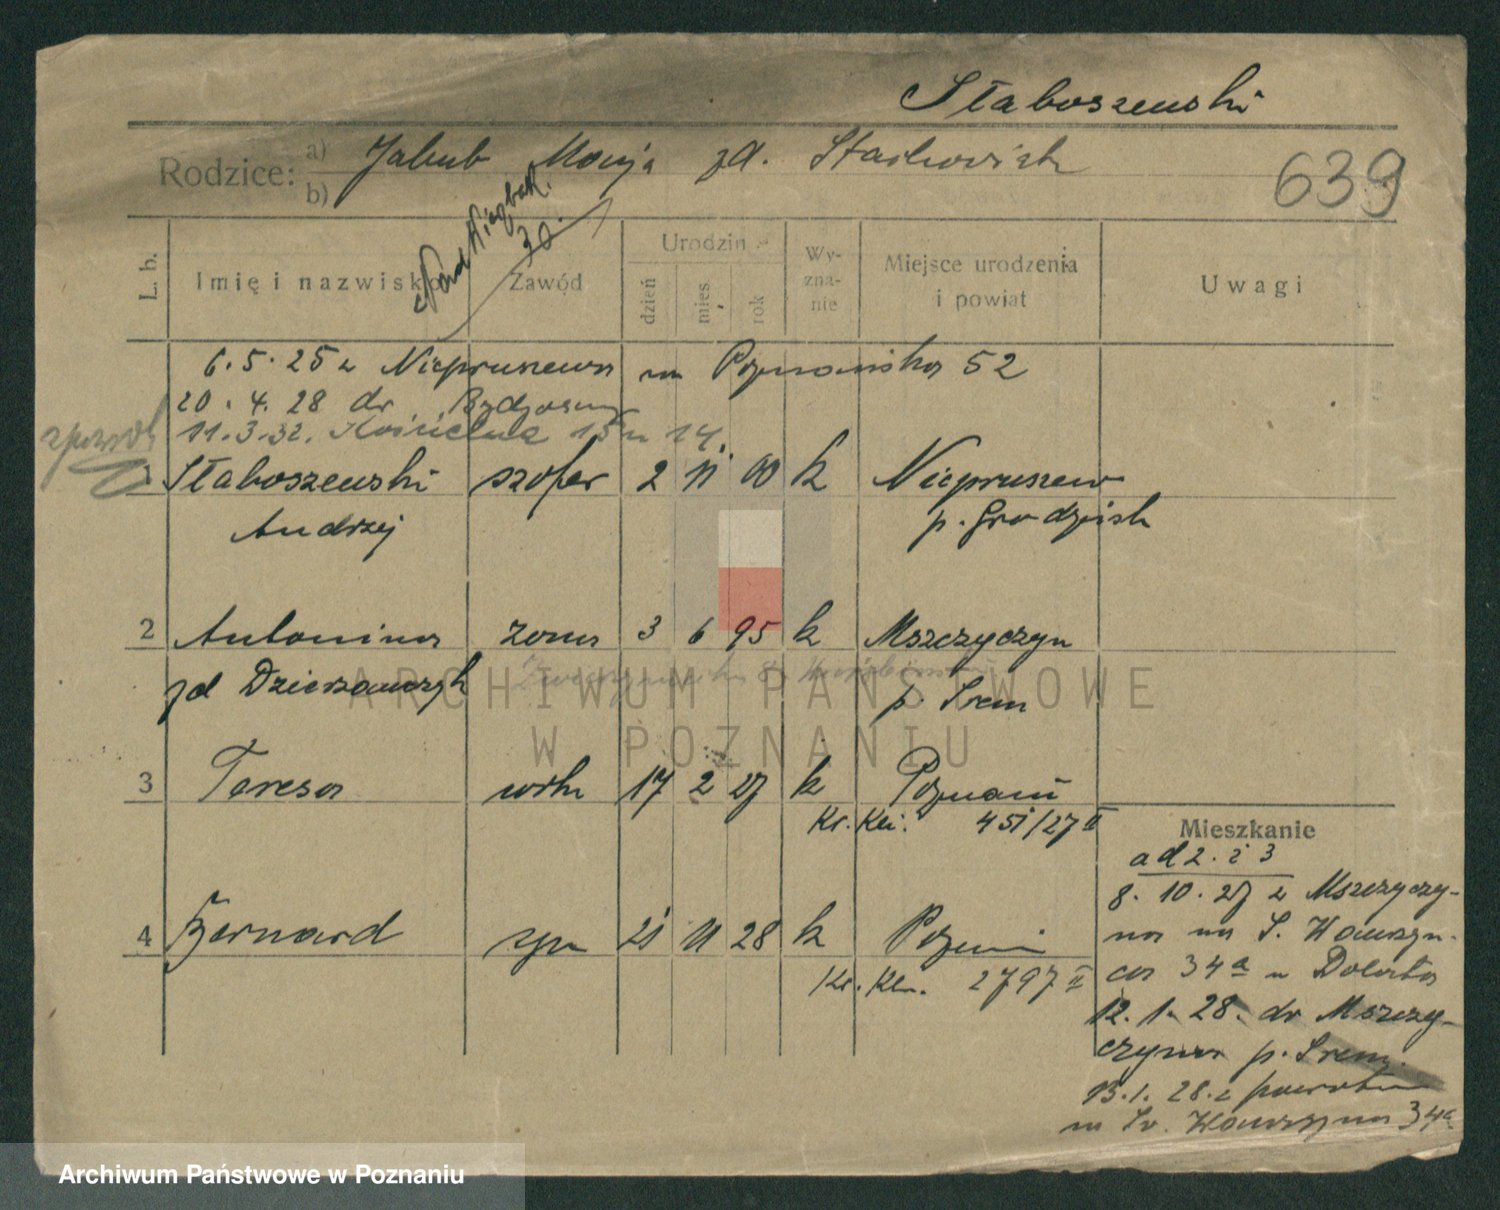 Słaboszewski
Rodzice: a) Jakub Maryja zd. Stachowiak
b)
639
Nad Wierzbak.
30.
L. b. Imię i nazwisko Zawód Urodzin dzień mies. rok Wyznanie Miejsce urodzenia i powiat Uwagi
6.5.25 z Niepruszewa na Poznańska 52
20.4.28 do Bydgoszczy
11.3.32. Kościelna 15 m 14.
Słaboszewski szofer 2 11 00 k Niepruszew
Andrzej p. Grodzisk
2 Antonina żona 3 6 95 k Mszczyczyn
zd p. Śrem
3 Teresa 17 2 27 k Poznań
Kr. Kli. 451/27 II
4 Bernard syn 21 11 28 k Poznań
Kr. Kli. 2797 II
Mieszkanie
ad 2. i 3
8.10.27 z Mszczyczy-
na na Ś. Wawrzyń-
ca 34a u
12.1.28. do Mszczy-
czyna p. Śrem.
13.1.28. z powrotem
na Św. Wawrzyńca 34a
ARCHIWUM PAŃSTWOWE
W POZNANIU
Archiwum Państwowe w Poznaniu